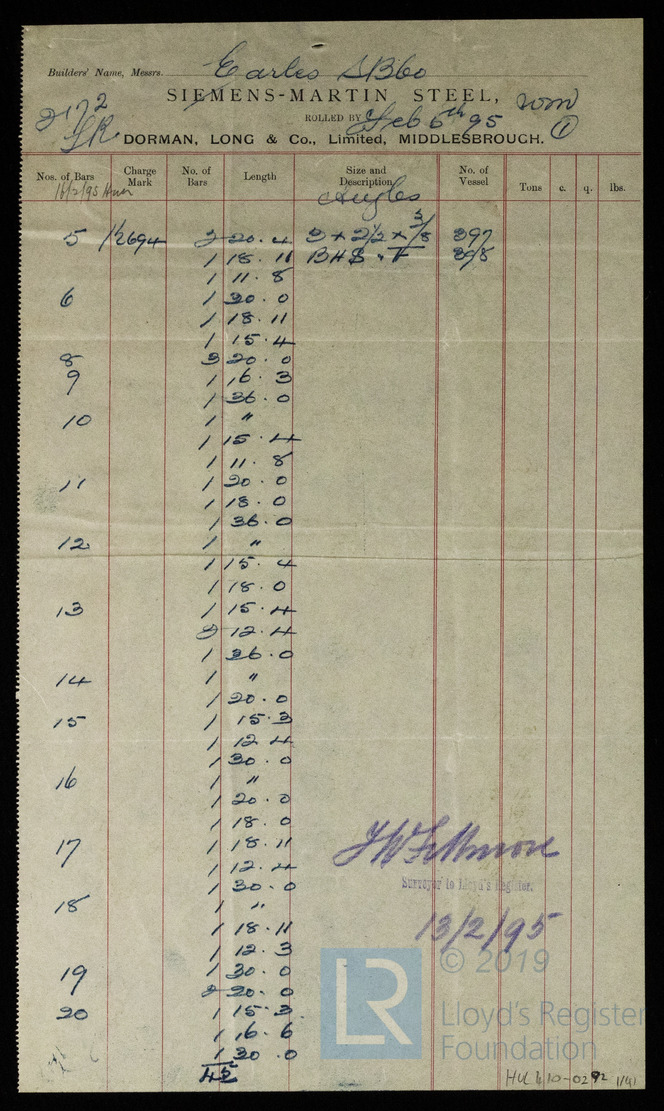 Builders' Name, Messrs. Earles SB Co
SIEMENS-MARTIN STEEL,
2172
ROLLED BY Feb 6th 95
DORMAN, LONG & Co., Limited, MIDDLESBROUGH. ①
Nos. of Bars Charge Mark No. of Bars Length Size and Description No. of Vessel Tons c. q. lbs.
16/2/95
Angles
5 12694 2 20.4 3 x 2 1/2 x 3/8 397
1 18.11 398
1 11.8
6 1 30.0
1 18.11
1 15.4
8 3 20.0
9 1 16.3
1 36.0
10 1 "
1 15.4
1 11.8
11 1 20.0
1 18.0
1 36.0
12 1 "
1 15.4
1 18.0
13 1 15.4
2 12.4
1 36.0
14 1 "
1 20.0
15 1 15.3
1 12.4
1 30.0
16 1 "
1 20.0
1 18.0
17 1 18.11
1 12.4
1 30.0
18 1 "
1 18.11
1 12.3
19 1 30.0
2 20.0
20 1 15.3
1 16.6
1 30.0
45
Surveyor to Lloyd's Register.
13/2/95
© 2019
LR
Lloyd's Register
Foundation